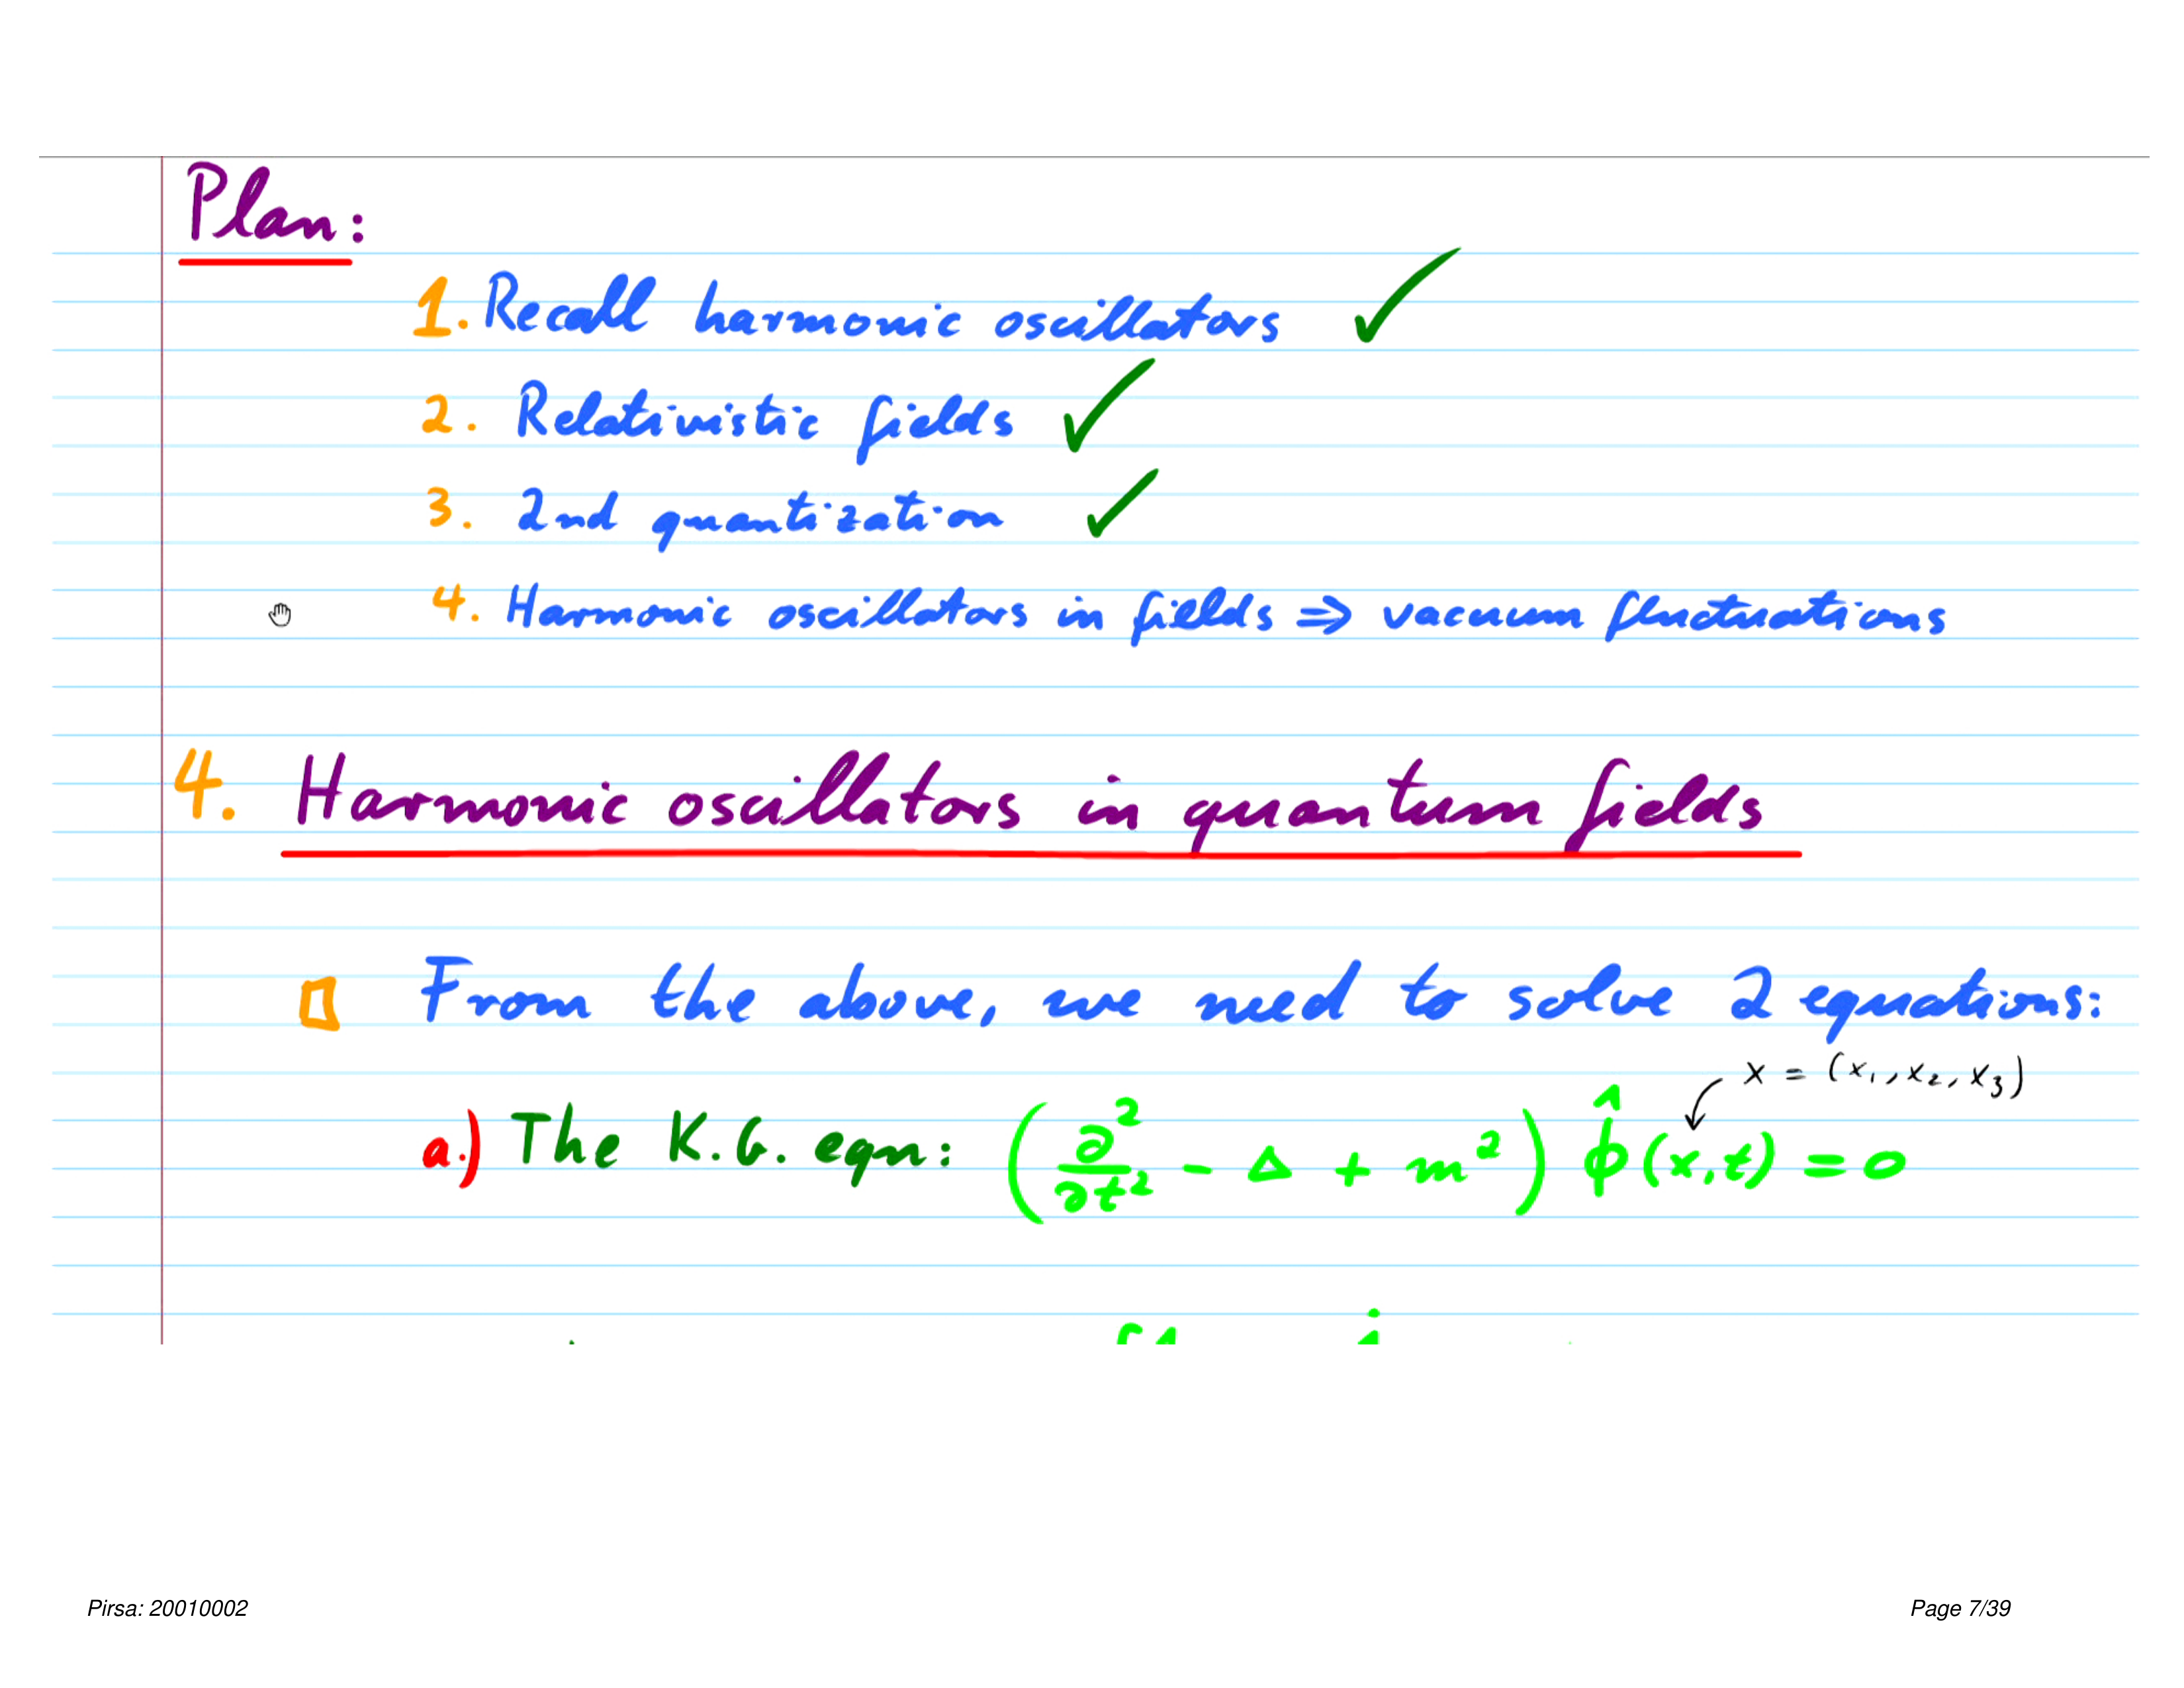 Plan:
1. Recall harmonic oscillators ✓
2. Relativistic fields ✓
3. 2nd quantization ✓
4. Harmonic oscillators in fields ⇒ vacuum fluctuations
4. Harmonic oscillators in quantum fields
From the above, we need to solve 2 equations:
x = (x₁, x₂, x₃)
a.) The K.G. eqn: (∂²/∂t² - Δ + m²) φ̂(x,t) = 0
Pirsa: 20010002
Page 7/39